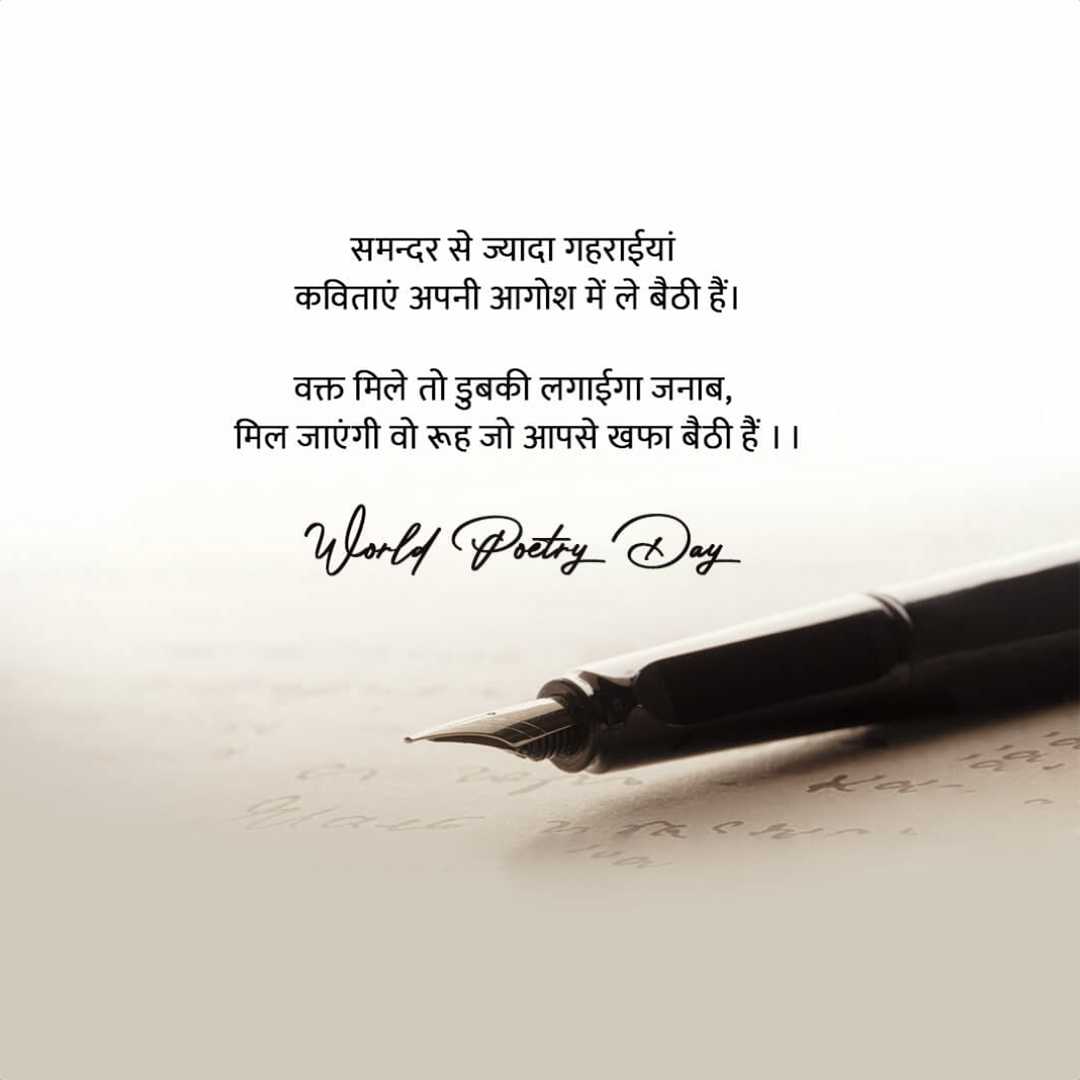 समन्दर से ज्यादा गहराईयां
कविताएं अपनी आगोश में ले बैठी हैं।
वक्त मिले तो डुबकी लगाईगा जनाब,
मिल जाएंगी वो रूह जो आपसे खफा बैठी हैं ।।
World Poetry Day